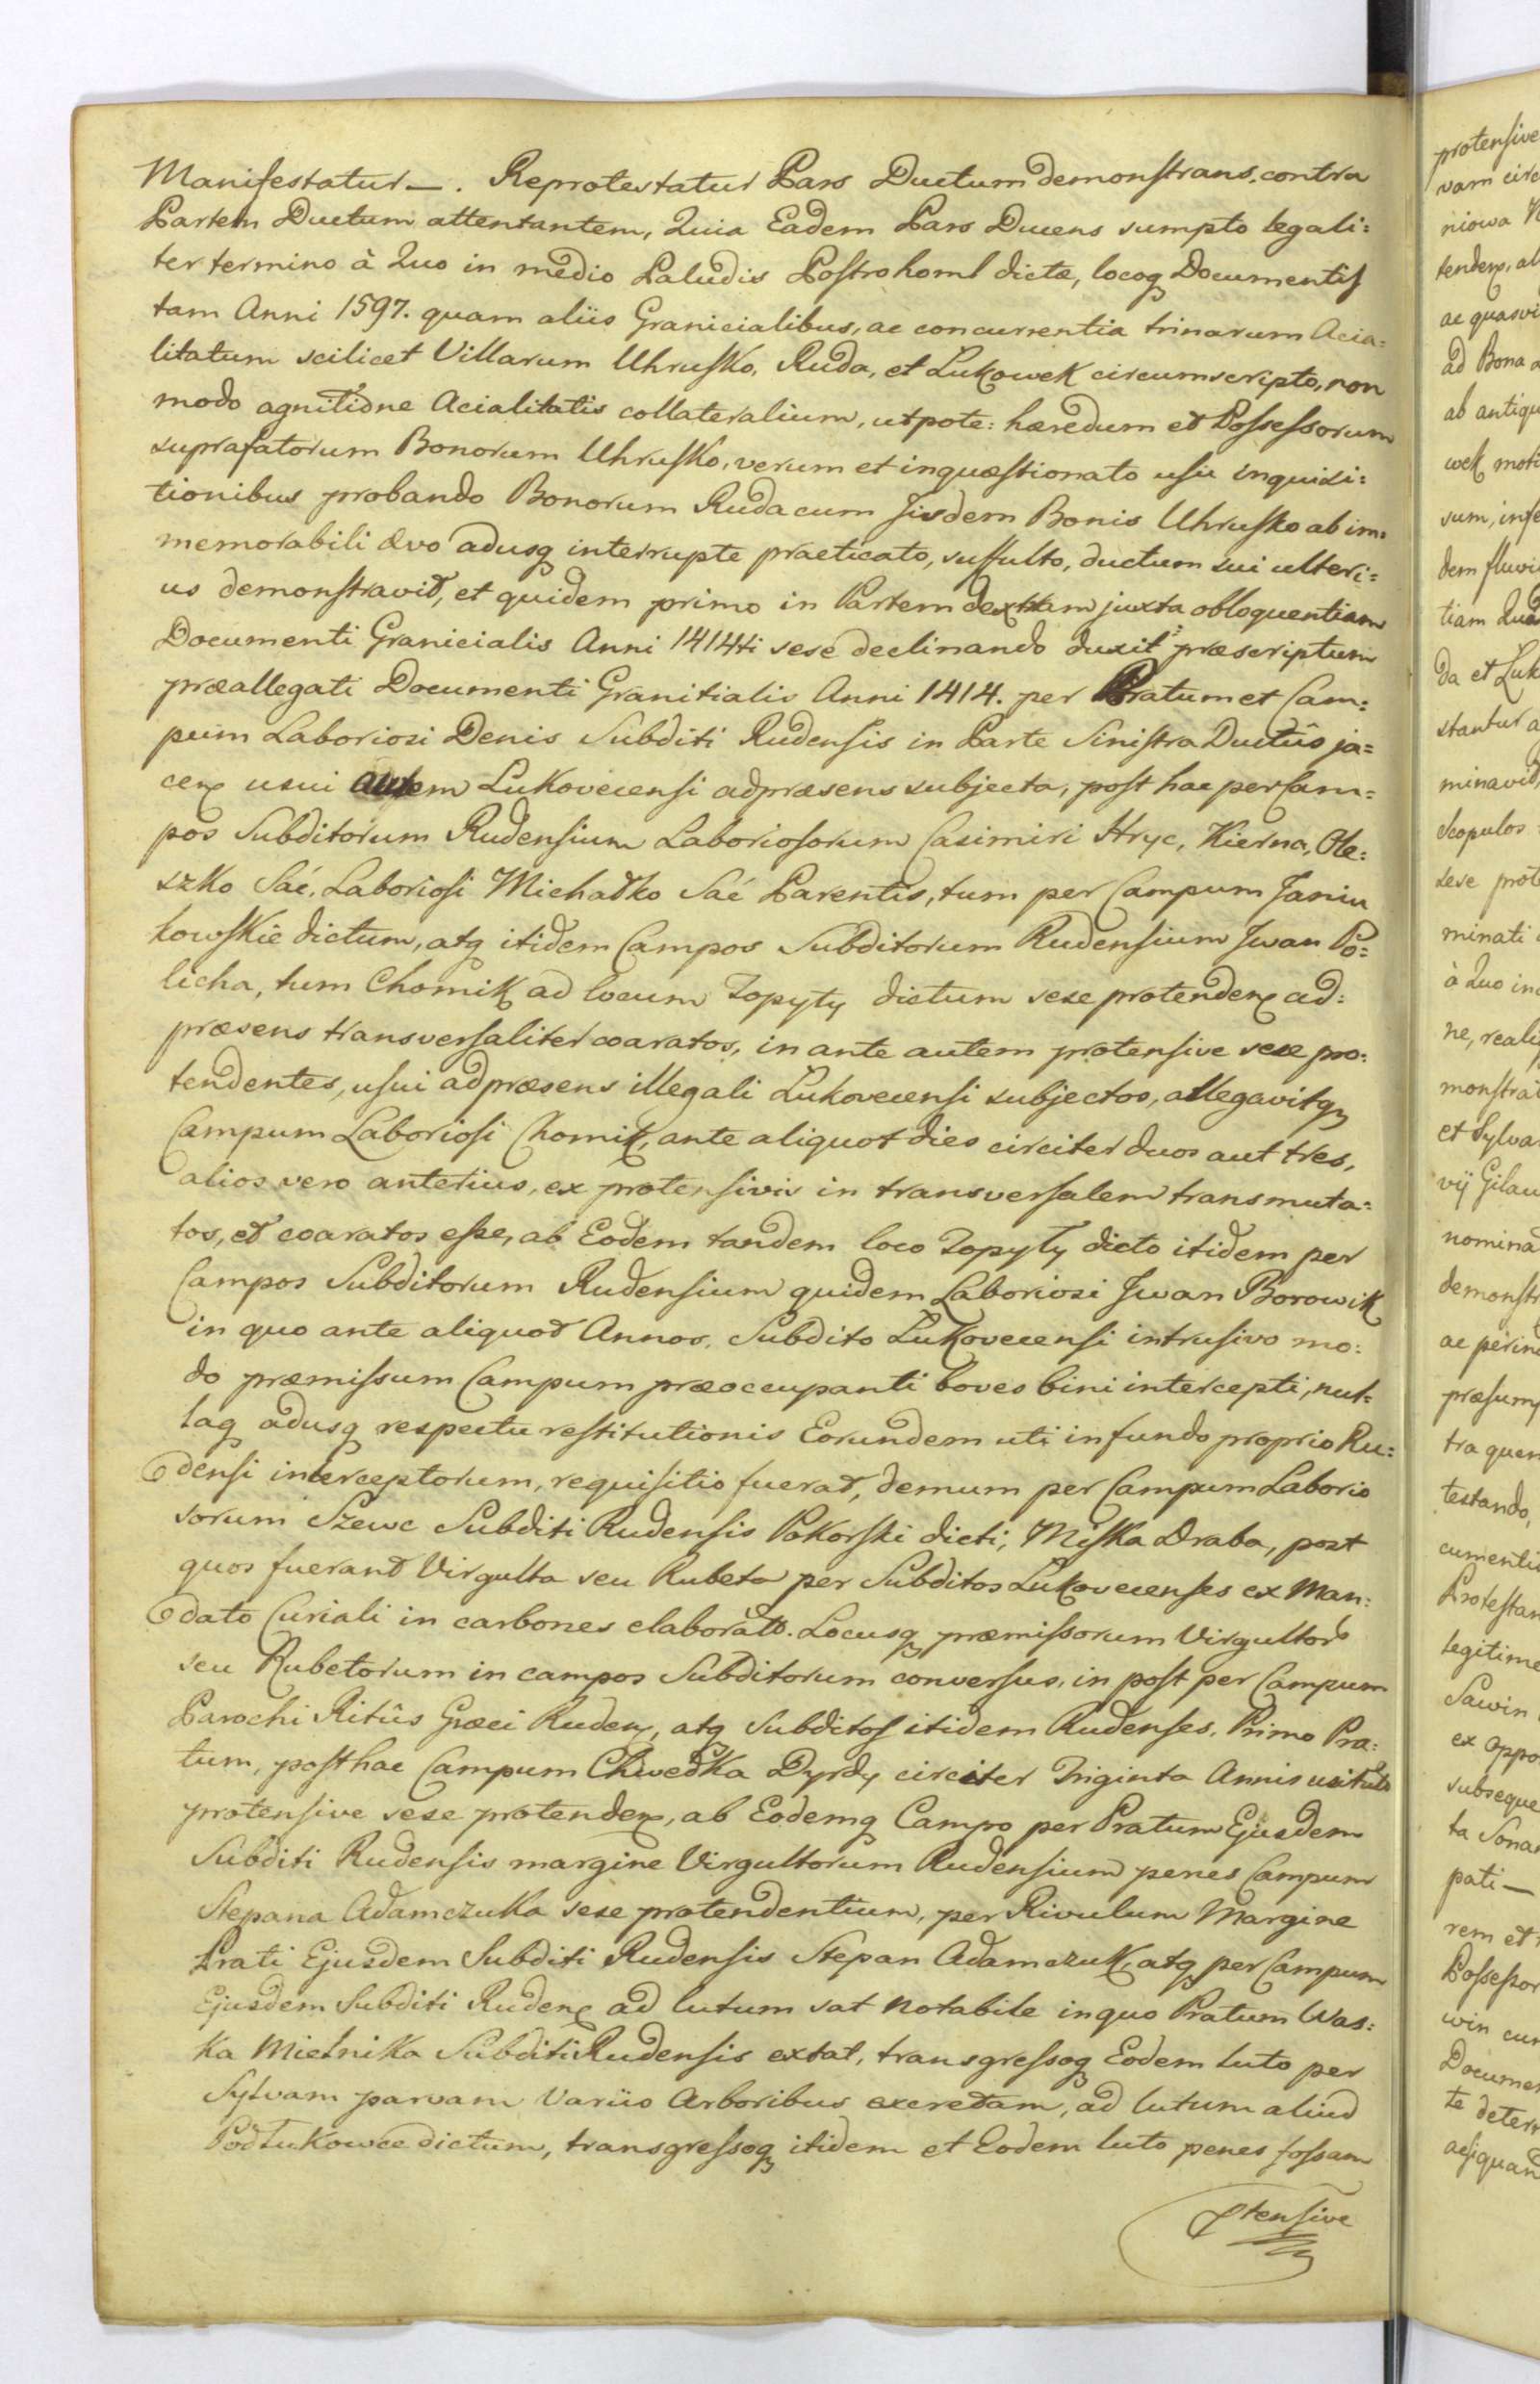 Manifestatur—. Reprotestatur Pars Ductum demonstrans, contra
Partem Ductum attentantem, Quia Eadem Pars Ducens sumpto legali=
ter termino à Quo in medio Paludis Postrohoml dictæ, locoq Documentis
tam Anni 1597. quam aliis Granicialibus, ac concurrentia trinarum Acia=
litatum scilicet Villarum Uhrusko, Ruda, et Lukowek circumscripto, non
modo agnitione Acialitatis collateralium, utpote: hæredum et Possessorum
suprafatorum Bonorum Uhrusko, verum et inquæstionato usu inquisi=
tionibus probando Bonorum Ruda cum Jisdem Bonis Uhrusko ab im=
memorabili ævo adusq interrupte practicato, suffulto, ductum sui ulteri=
us demonstravit, et quidem primo in Partem dextram juxta obloquentiam
Documenti Granicialis Anni 1414ti sese declinando duxit præscriptum
præallegati Documenti Granitialis Anni 1414. per Pratum et Cam=
pum Laboriosi Denis Subditi Rudensis in Parte Sinistra Ductûs ja=
cen usui autem Lukovecensi adpræsens subjecta, post hac per Cam=
pos Subditorum Rudensium Laboriosorum Casimiri Hryc, Kierna, Ole=
szko Saé, Laboriosi Michałko Saé Parentis, tum per Campum Janiu
kowskie dictum, atq itidem Campos Subditorum Rudensium Jwan Po=
licha, tum Chomik ad locum Zopyty dictum sese protenden ad=
præsens transversaliter coaratos, in ante autem protensive sese pro=
tendentes, usui adpræsens illegali Lukovecensi subjectos, allegavitq
Campum Laboriosi Chomik, ante aliquot dies circiter duos aut tres,
alios vero anterius, ex protensivis in transversalem transmuta=
tos, et coaratos esse, ab Eodem tandem loco Zopyty dicto itidem per
Campos Subditorum Rudensium quidem Laboriosi Jwan Borowik
in quo ante aliquot Annos, Subdito Lukovecensi intrusivo mo=
do præmissum Campum præoccupanti boves bini intercepti, nul=
laq adusq respectu restitutionis Eorundem uti in fundo proprio Ru=
densi interceptorum, requisitio fuerat, demum per Campum Laborio
sorum Szewc Subditi Rudensis Pokorski dicti, Miska Draba, post
quos fuerant Virgulta seu Rubeta per Subditos Lukovecenses ex Man=
dato Curiali in carbones elaborata. Locusq præmissorum Virgultor
seu Rubetorum in campos Subditorum conversus, in post per Campum
Parochi Ritûs Græci Ruden, atq Subditos itidem Rudenses. Primo Pra=
tum, posthac Campum Chwedka Dyrdy circiter Triginta Annis usitata
protensive sese protenden, ab Eodemq Campo per Pratum Ejusdem
Subditi Rudensis margine Virgultorum Rudensium penes Campum
Stepana Adamczuka sese protendentium, per Rivulum Margine
Prati Ejusdem Subditi Rudensis Stepan Adamczuk, atq per Campum
Ejusdem Subditi Ruden ad lutum sat notabile in quo Pratum Was=
ka Mielnika Subditi Rudensis extat, transgressoq Eodem luto per
Sylvam parvam Variis Arboribus excretam, ad lutum aliud
Podłukowce dictum, transgressoq itidem et Eodem luto penes fossam
ptensive